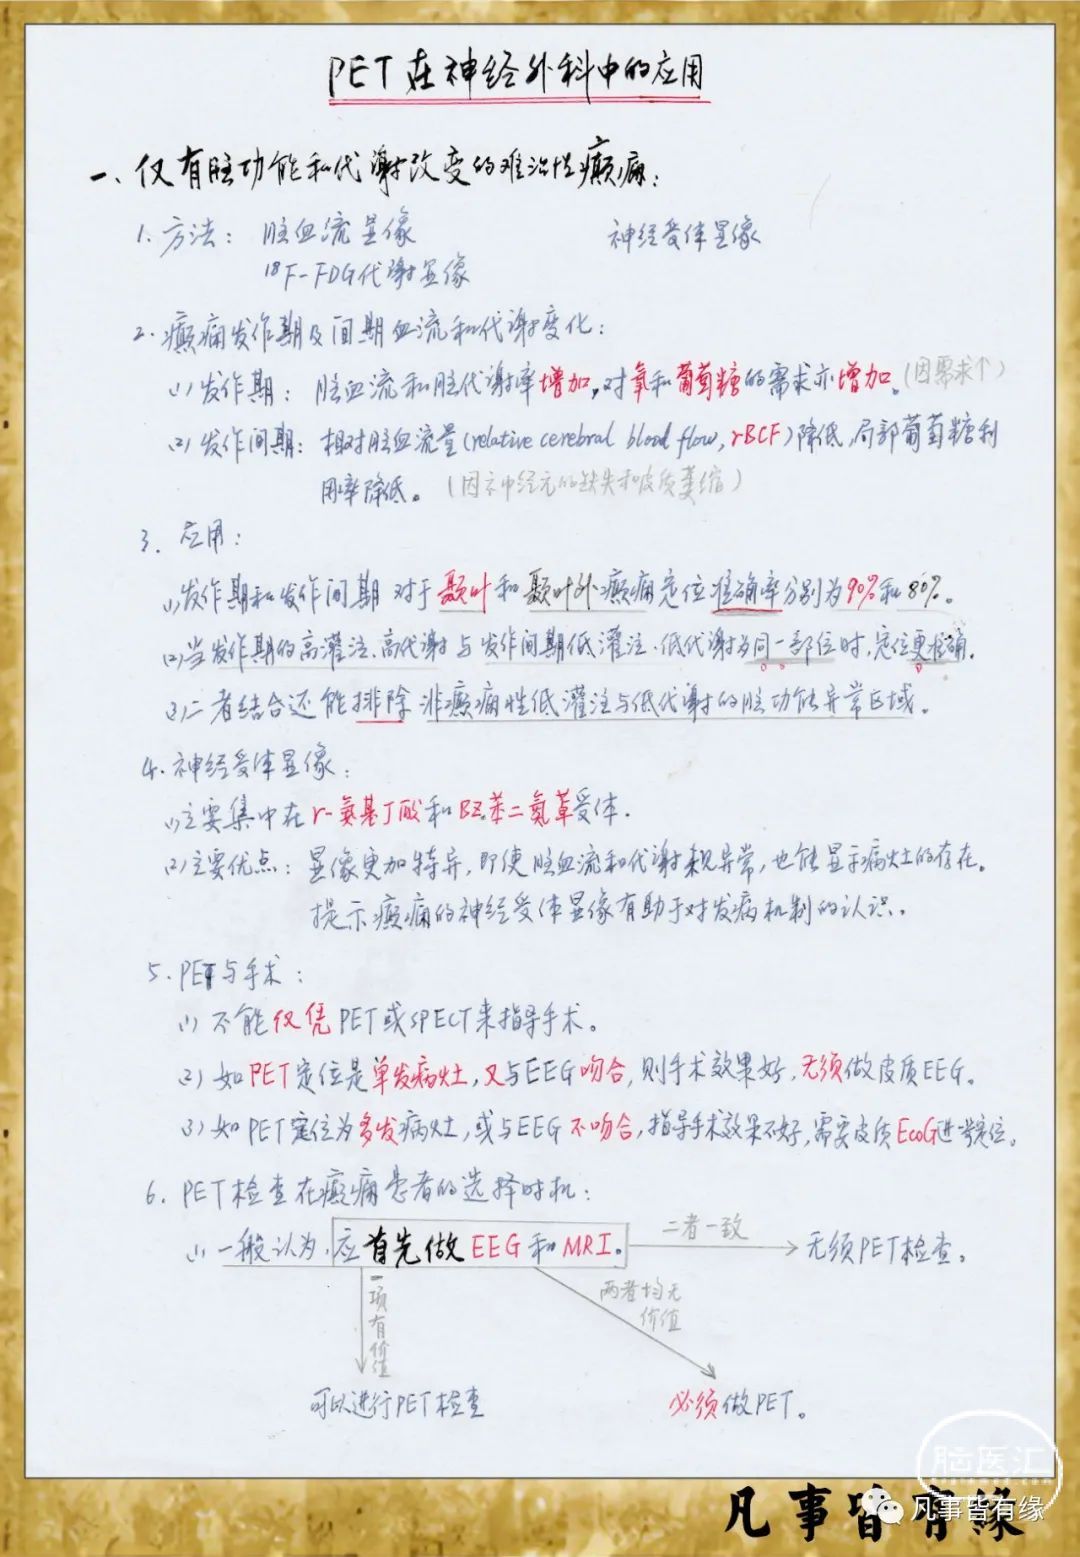 PET在神经外科中的应用
一、仅有脑功能和代谢改变的难治性癫痫：
1. 方法： 脑血流显像 神经受体显像
18F-FDG代谢显像
2. 癫痫发作期及间期血流和代谢变化：
(1) 发作期： 脑血流和脑代谢率增加，对氧和葡萄糖的需求亦增加。（因需求↑）
(2) 发作间期： 相对脑血流量(relative cerebral blood flow, rBCF)降低，局部葡萄糖利
用率降低。（因神经元的缺失和皮质萎缩）
3. 应用：
(1) 发作期和发作间期 对于颞叶和颞叶外癫痫定位准确率分别为90%和80%。
(2) 当发作期的高灌注、高代谢与发作间期低灌注、低代谢为同一部位时，定位更准确。
(3) 二者结合还能排除非癫痫性低灌注与低代谢的脑功能异常区域。
4. 神经受体显像：
(1) 主要集中在r-氨基丁酸和BZ.苯二氮䓬受体.
(2) 主要优点： 显像更加特异，即使脑血流和代谢未见异常，也能显示病灶的存在。
提示癫痫的神经受体显像有助于对发病机制的认识。
5. PET与手术：
(1) 不能仅凭PET或SPECT来指导手术。
(2) 如PET定位是单发病灶，又与EEG吻合，则手术效果好，无须做皮质EEG。
(3) 如PET定位为多发病灶，或与EEG不吻合，指导手术效果不好，需要皮质EcoG进一步定位。
6. PET检查在癫痫患者的选择时机：
(1) 一般认为，应首先做EEG和MRI。 二者一致 无须PET检查。
一项有价值
两者均无
价值
可以进行PET检查 必须做PET。
脑医汇
凡事皆有缘
凡事皆有缘